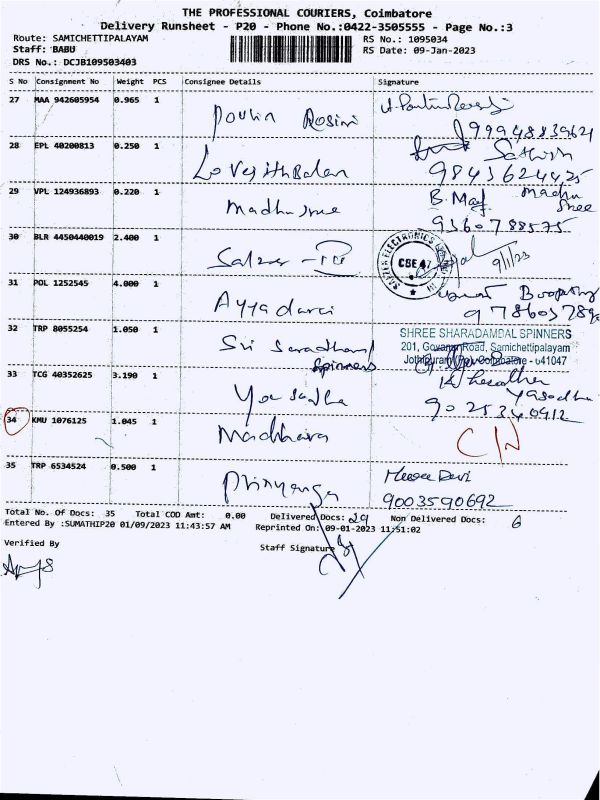 THE PROFESSIONAL COURIERS, Coimbatore
Delivery Runsheet - P20 - Phone No.:0422-3505555 - Page No.:3
Route: SAMICHETTIPALAYAM RS No.: 1095034
Staff: BABU RS Date: 09-Jan-2023
DRS No.: DCJB109503403
S No Consignment No Weight PCS Consignee Details Signature
27 MAA 942605954 0.965 1
Poulin Rosini
9994883962
28 EPL 40200813 0.250 1 Sathish
Lovejithbalan 9843624425
29 VPL 124936893 0.220 1 B. Madhu Shree
Madhusree 9360788575
30 BLR 4450440019 2.400 1
SALZER ELECTRONICS CBE 47
Salzer - III 9/1/23
31 POL 1252545 4.000 1 Boopathy
Ayyadurai
32 TRP 8055254 1.050 1 SHREE SHARADAMBAL SPINNERS
Sri Saradham 201, Govanur Road, Samichettipalayam
Spinners Jothipuram, Coimbatore - 641047
33 TCG 40352625 3.190 1
Yasodha Yasodha
9025340912
34 KMU 1076125 1.045 1
Madhhava C/N
35 TRP 6534524 0.500 1 Meera Devi
Priyanga 9003590692
Total No. Of Docs: 35 Total COD Amt: 0.00 Delivered Docs: 29 Non Delivered Docs: 6
Entered By :SUMATHIP20 01/09/2023 11:43:57 AM Reprinted On: 09-01-2023 11:51:02
Verified By Staff Signature